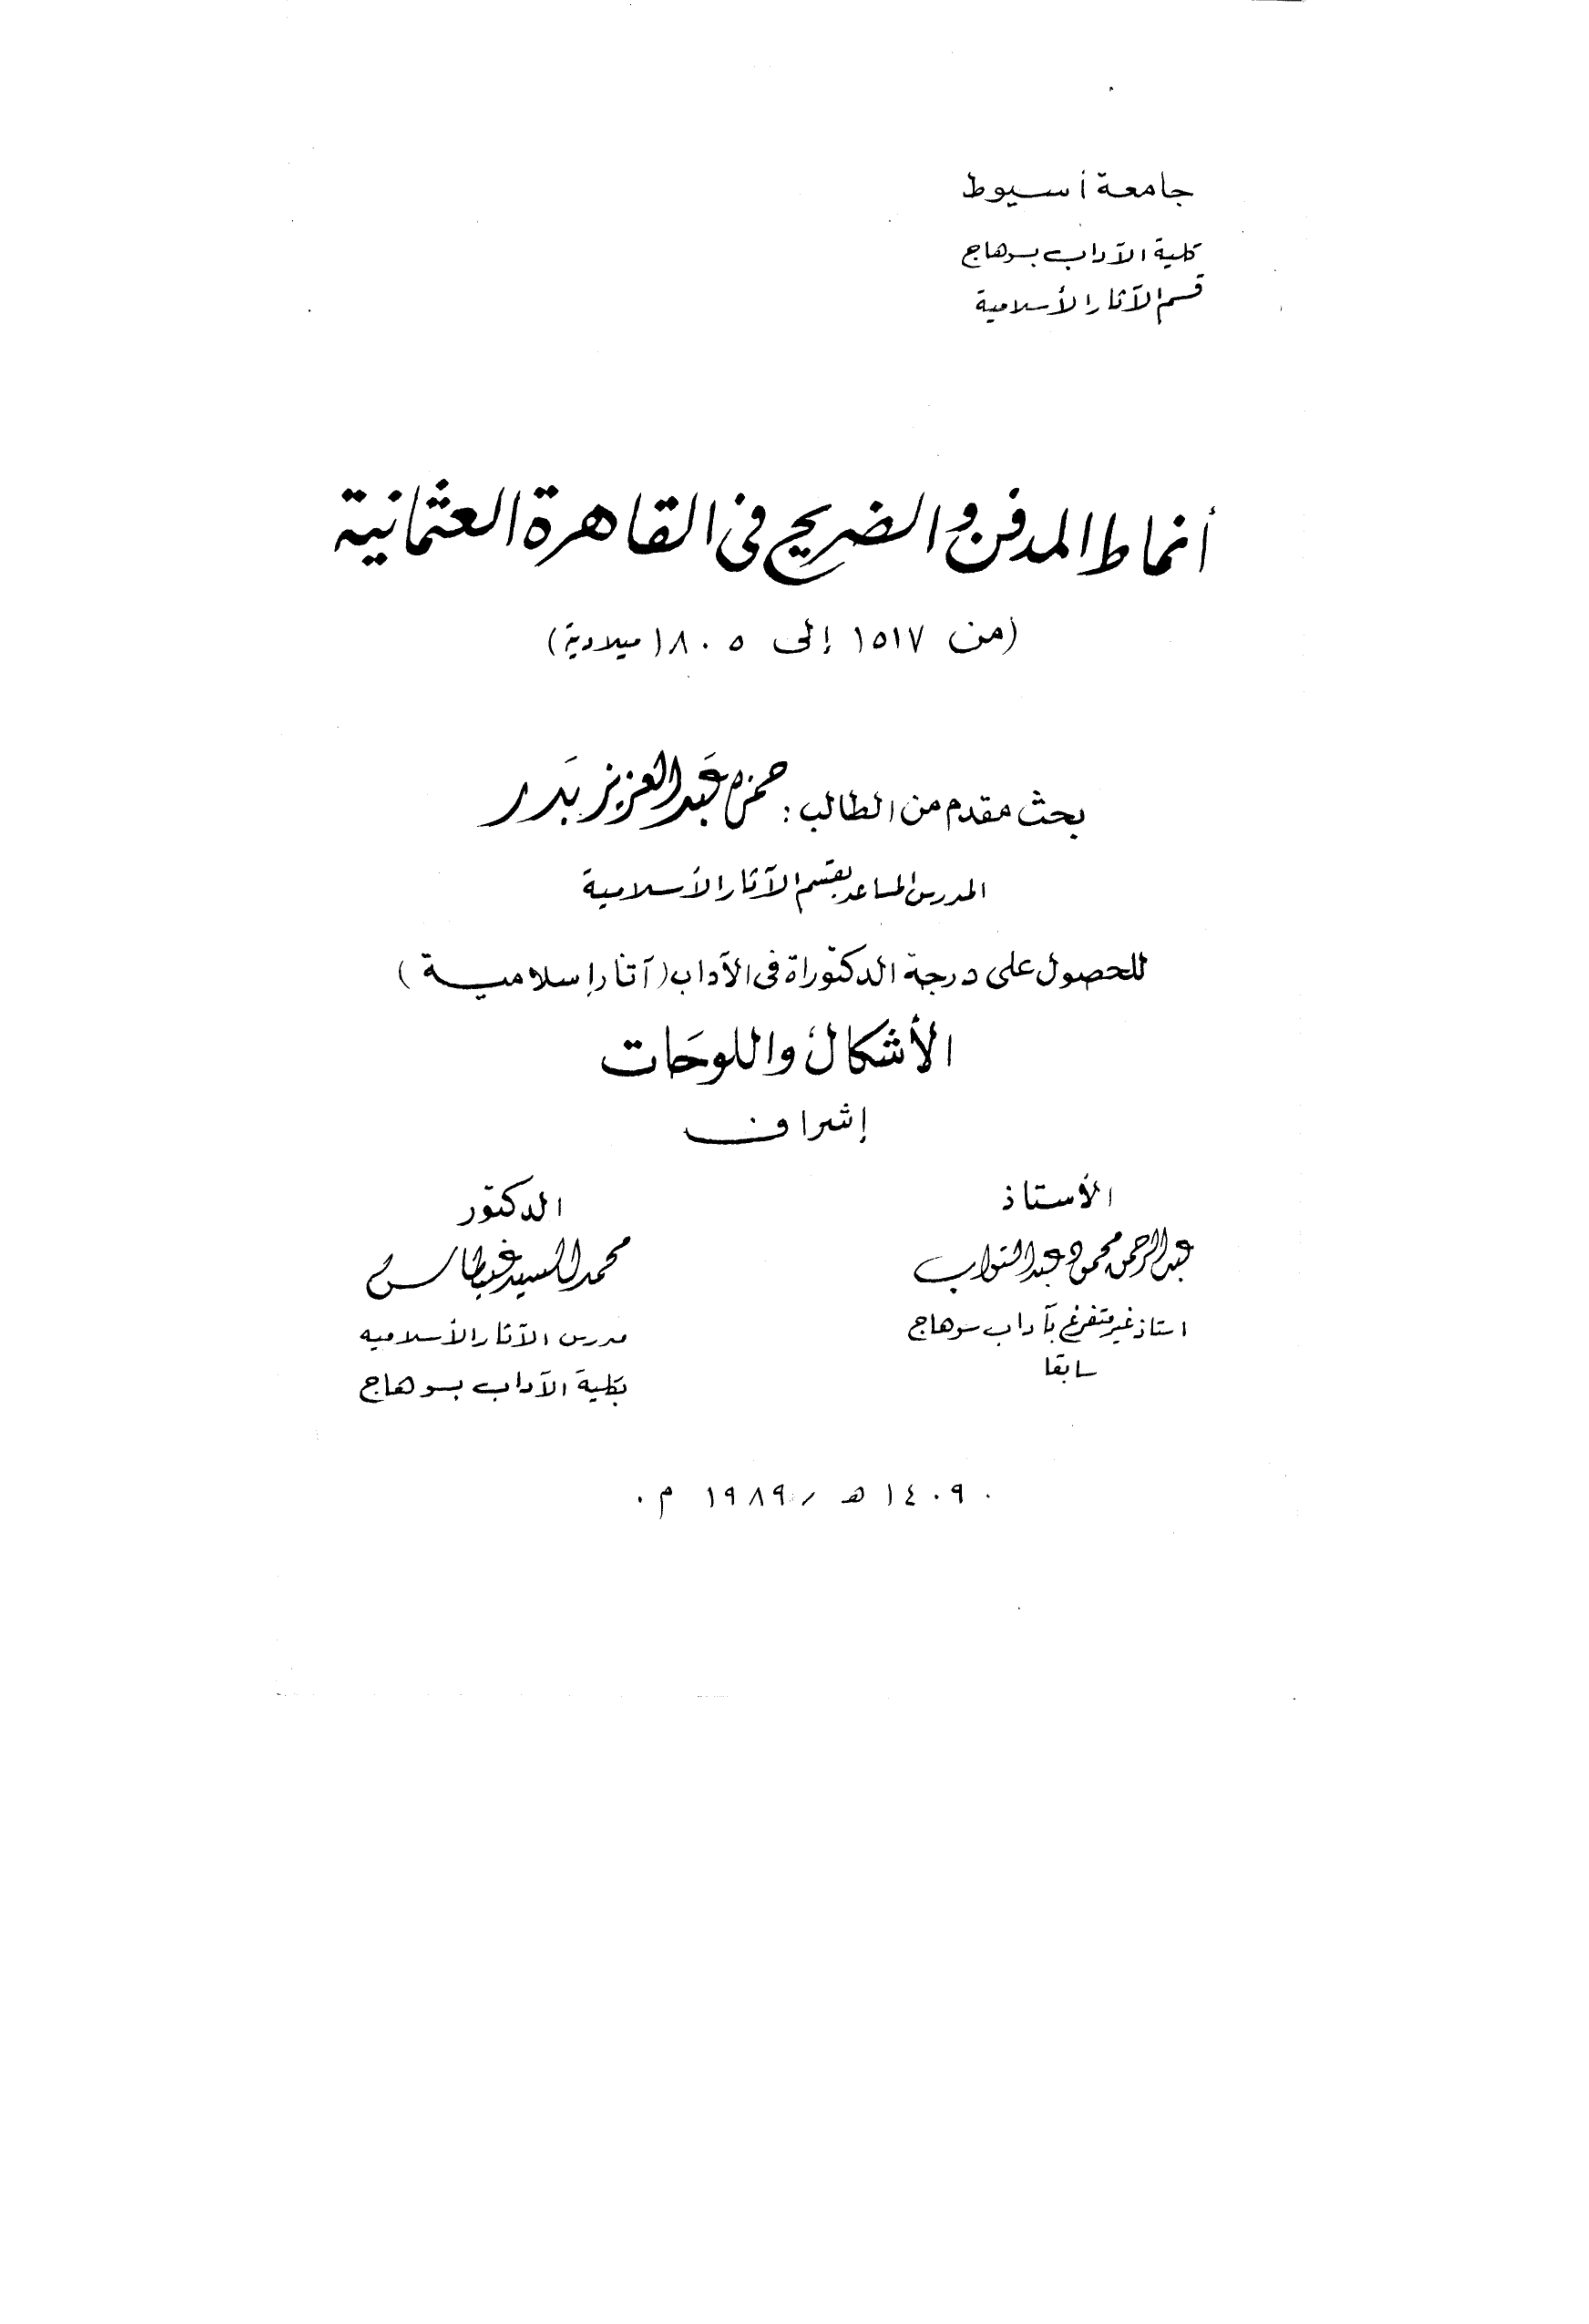 جامعة أسيوط
كلية الآداب بسوهاج
قسم الآثار الأسلامية
أنماط المدفن والضريح فى القاهرة العثمانية
(من ١٥١٧ إلى ١٨٠٥ ميلادية)
بحث مقدم من الطالب: حمزه عبد العزيز بدر
المدرس المساعد بقسم الآثار الأسلامية
للحصول على درجة الدكتوراة فى الآداب (آثار إسلامية)
الأشكال واللوحات
إشراف
الأستاذ
عبد الرحمن محمود عبد التواب
استاذ غير متفرغ بآداب سوهاج
سابقا
الدكتور
محمد السيد غيطاس
مدرس الآثار الأسلاميه
بكلية الآداب بسوهاج
١٤٠٩ هـ / ١٩٨٩ م.